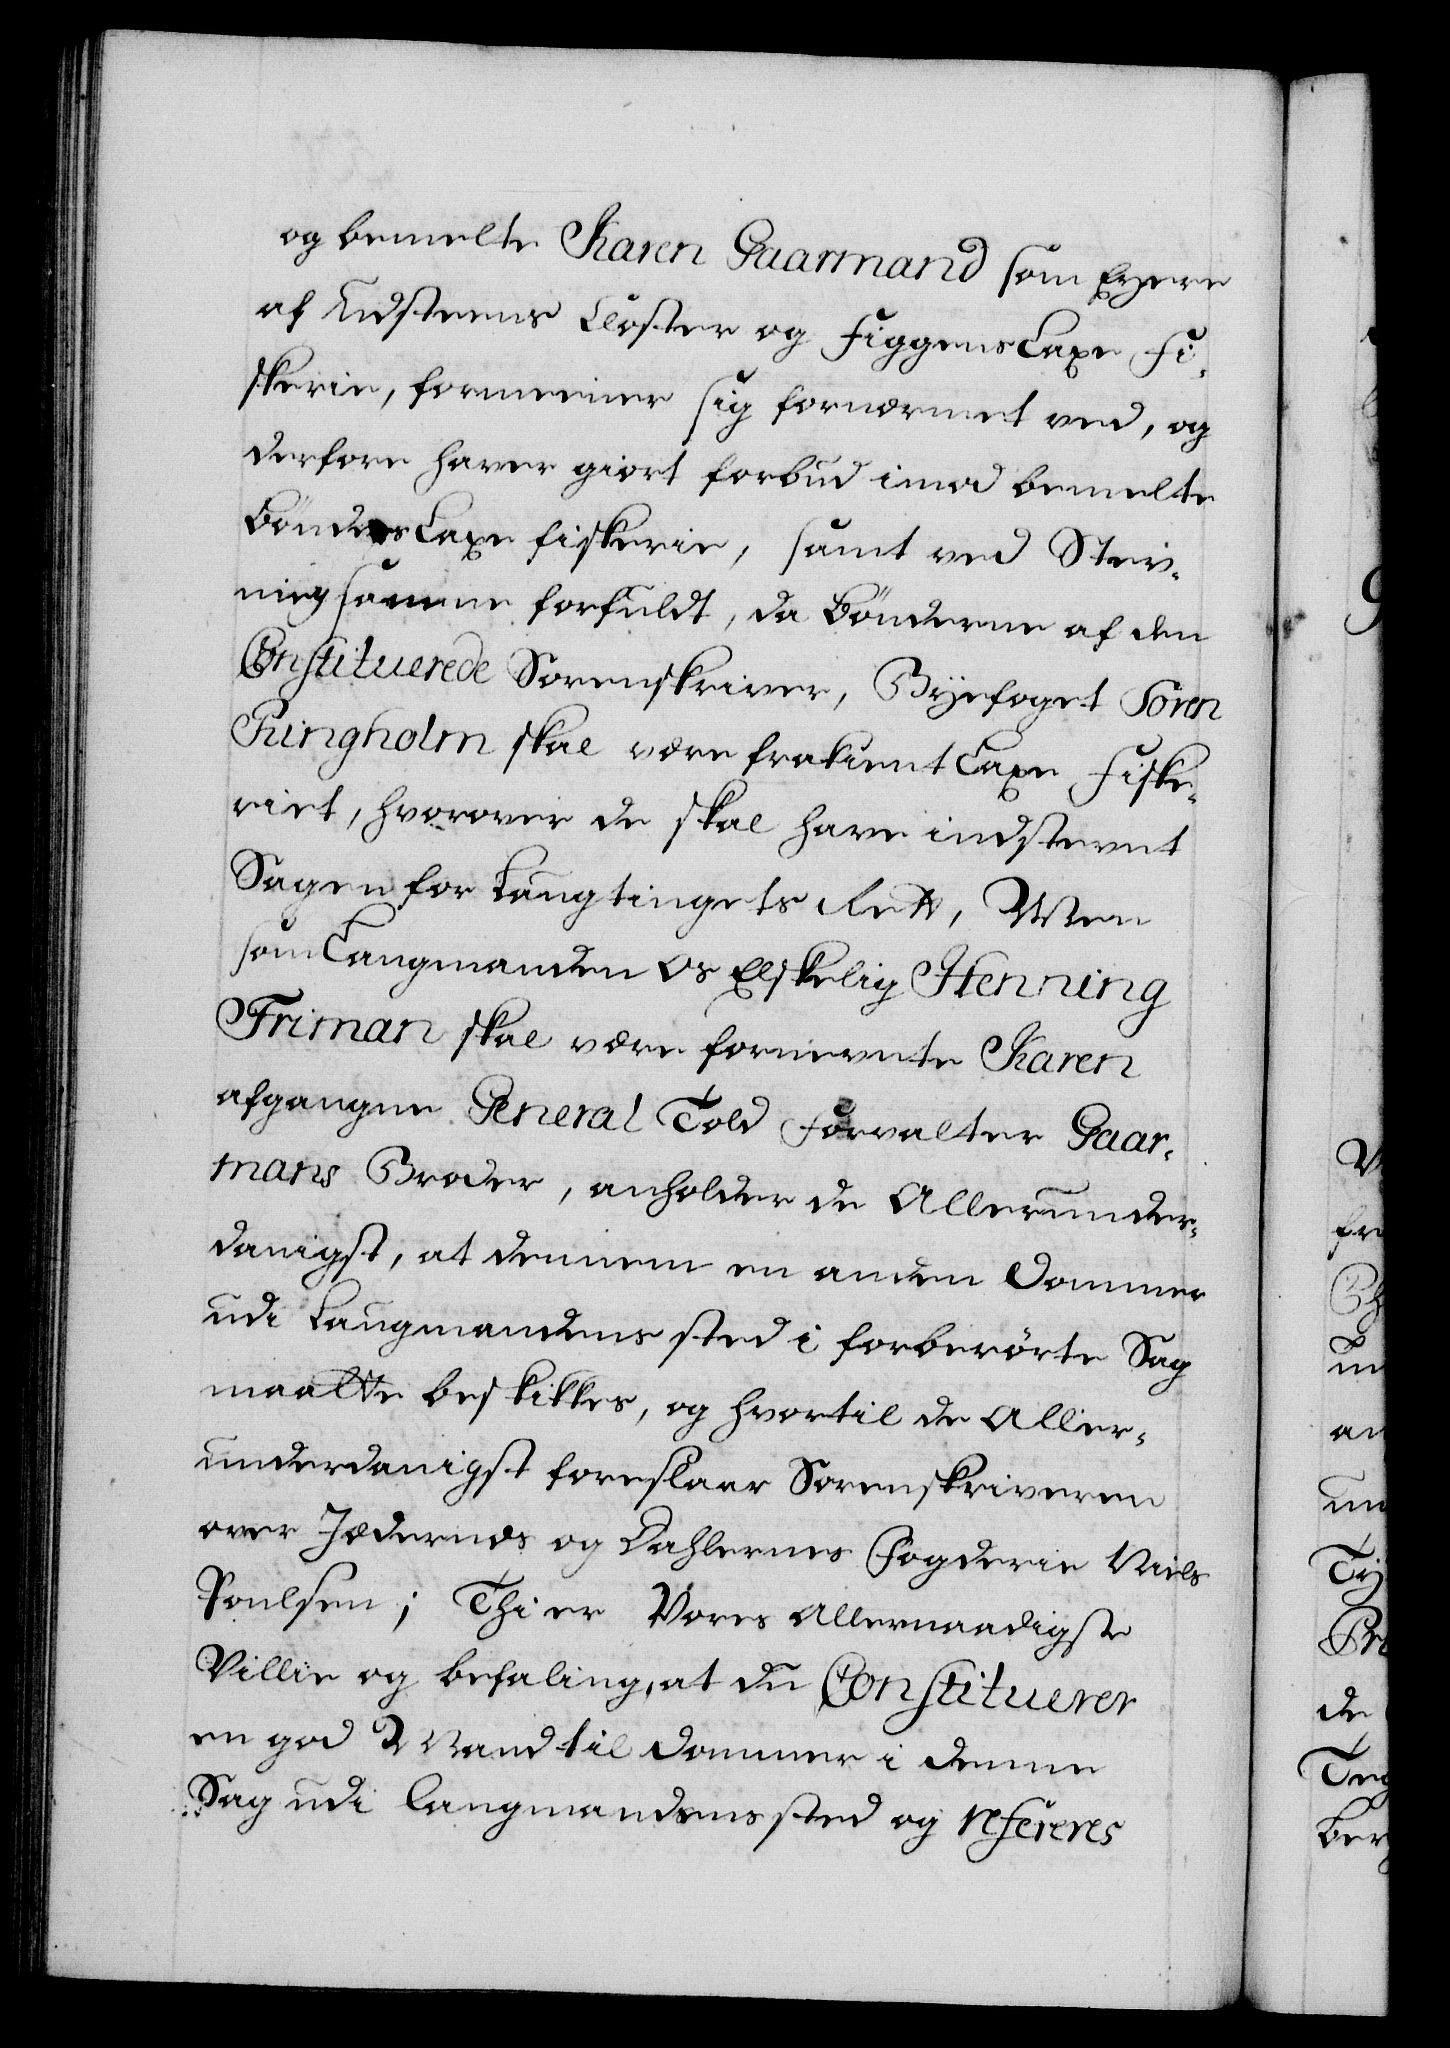 og bemelte Karen Gaarmand som Eyere
af Udsteens Closter og Figgens Laxe Fi-
skerie, formeener sig fornærmet ved, og
derfore haver giort forbud imod bemelte
Bønders Laxe fiskerie, samt ved Stev-
ning samme forfuldt, da Bønderne af den
Constituerede Sorenskriver, Byefoget Sören
Ringholm skal være frakient Laxe Fiske-
riet, hvorover de skal have indstevnt
Sagen for Laugtingets Rett, Men
som Laugmanden Os Elskelig Henning
Friman skal være fornevnte Karen
afgangne General Told Forvalter Gaar-
mans Broder, anholder de Allerunder-
danigst, at dennem en anden Dommer
udi Laugmandens sted i forberørte Sag
maatte beskikkes, og hvortil de Aller-
underdanigst foreslaar Sorenskriveren
over Jæderens og Dahlernes Fogderie Niels
Poulsen; Thi er Vores Allernaadigste
Villie og befaling, at du Constituerer
en god Mand til Dommer i denne
Sag udi Laugmandens sted og refereres